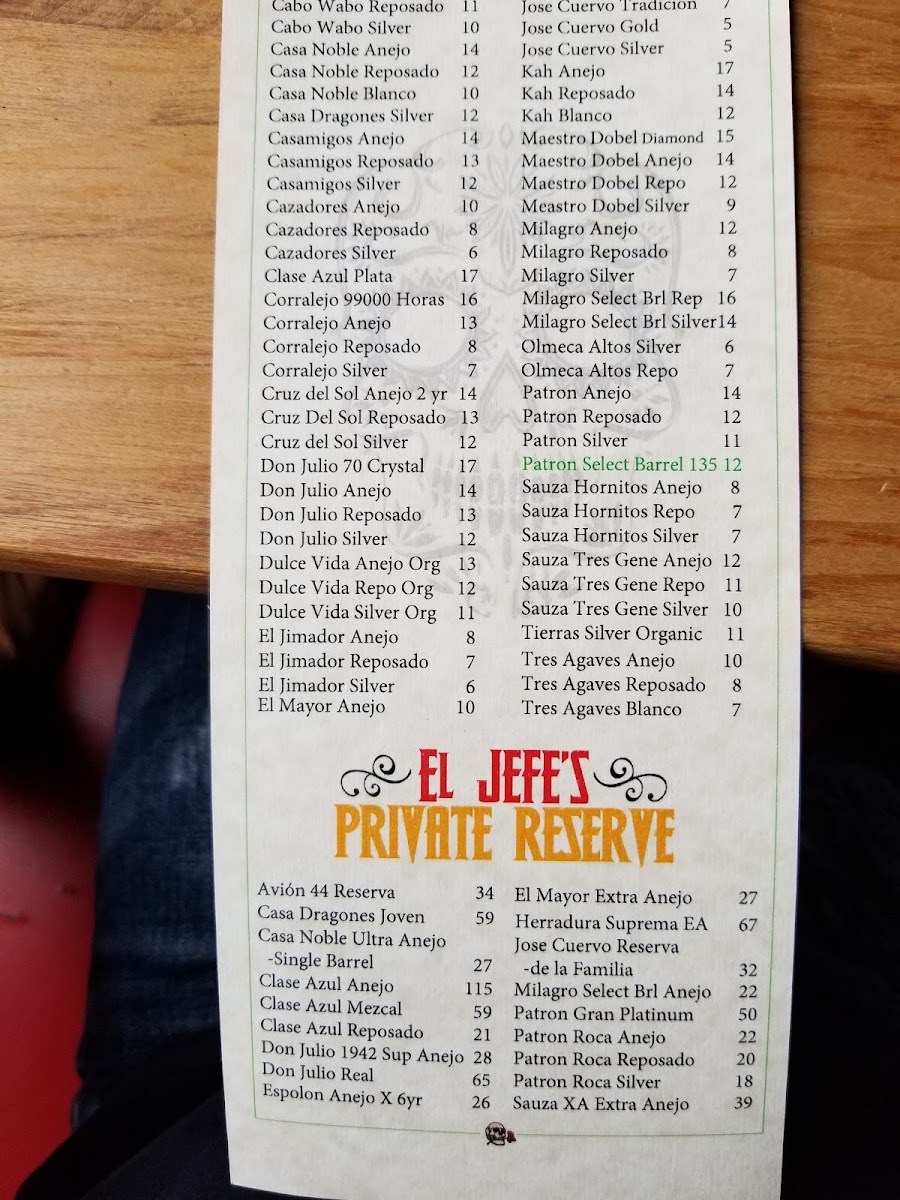 Cabo Wabo Reposado 11
Cabo Wabo Silver 10
Casa Noble Anejo 14
Casa Noble Reposado 12
Casa Noble Blanco 10
Casa Dragones Silver 12
Casamigos Anejo 14
Casamigos Reposado 13
Casamigos Silver 12
Cazadores Anejo 10
Cazadores Reposado 8
Cazadores Silver 6
Clase Azul Plata 17
Corralejo 99000 Horas 16
Corralejo Anejo 13
Corralejo Reposado 8
Corralejo Silver 7
Cruz del Sol Anejo 2 yr 14
Cruz Del Sol Reposado 13
Cruz del Sol Silver 12
Don Julio 70 Crystal 17
Don Julio Anejo 14
Don Julio Reposado 13
Don Julio Silver 12
Dulce Vida Anejo Org 13
Dulce Vida Repo Org 12
Dulce Vida Silver Org 11
El Jimador Anejo 8
El Jimador Reposado 7
El Jimador Silver 6
El Mayor Anejo 10
Jose Cuervo Tradicion 7
Jose Cuervo Gold 5
Jose Cuervo Silver 5
Kah Anejo 17
Kah Reposado 14
Kah Blanco 12
Maestro Dobel Diamond 15
Maestro Dobel Anejo 14
Maestro Dobel Repo 12
Meastro Dobel Silver 9
Milagro Anejo 12
Milagro Reposado 8
Milagro Silver 7
Milagro Select Brl Rep 16
Milagro Select Brl Silver14
Olmeca Altos Silver 6
Olmeca Altos Repo 7
Patron Anejo 14
Patron Reposado 12
Patron Silver 11
Patron Select Barrel 135 12
Sauza Hornitos Anejo 8
Sauza Hornitos Repo 7
Sauza Hornitos Silver 7
Sauza Tres Gene Anejo 12
Sauza Tres Gene Repo 11
Sauza Tres Gene Silver 10
Tierras Silver Organic 11
Tres Agaves Anejo 10
Tres Agaves Reposado 8
Tres Agaves Blanco 7
EL JEFE'S
PRIVATE RESERVE
Avión 44 Reserva 34
Casa Dragones Joven 59
Casa Noble Ultra Anejo
-Single Barrel 27
Clase Azul Anejo 115
Clase Azul Mezcal 59
Clase Azul Reposado 21
Don Julio 1942 Sup Anejo 28
Don Julio Real 65
Espolon Anejo X 6yr 26
El Mayor Extra Anejo 27
Herradura Suprema EA 67
Jose Cuervo Reserva
-de la Familia 32
Milagro Select Brl Anejo 22
Patron Gran Platinum 50
Patron Roca Anejo 22
Patron Roca Reposado 20
Patron Roca Silver 18
Sauza XA Extra Anejo 39